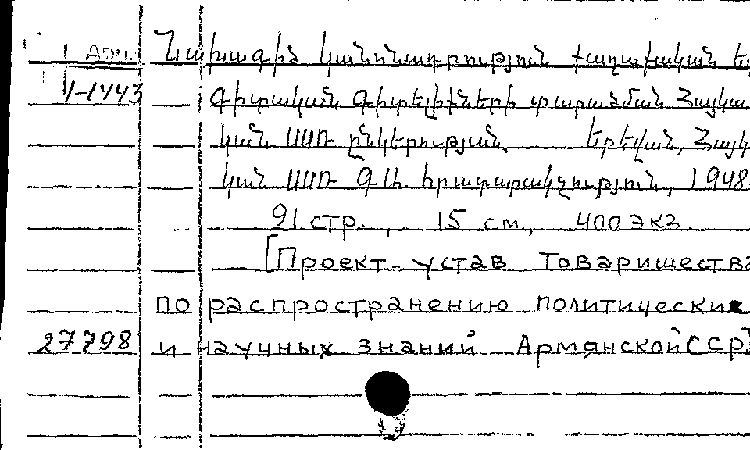 Арм. Նախագիծ կանոնադրություն քաղաքական և
1-1443 գիտական գիտելիքների տարածման Հայկա
կան ՍՍՌ ընկերության. Երևան, Հայկ
կան ՍՍՌ Գ.Ա. հրատարակչություն, 1948
21 стр., 15 см., 400 экз.
[Проект-устав Товарищества
по распространению политических
27798 и научных знаний Армянской ССР]